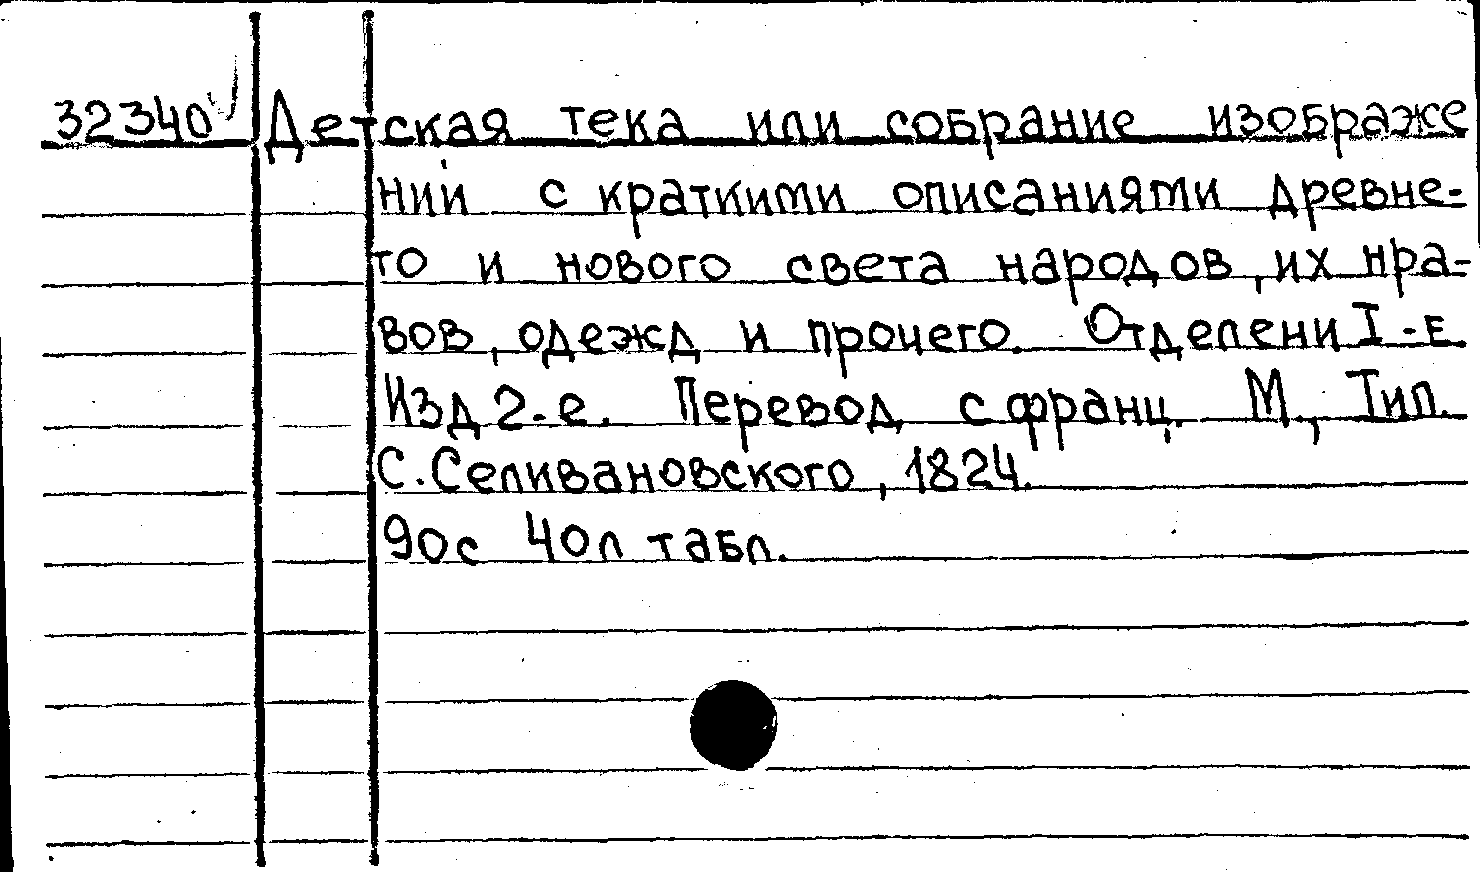 32340 Детская тека или собрание изображе
ний с краткими описаниями древне-
го и нового света народов, их нра-
вов, одежд и прочего. Отделени I-е.
Изд 2-е. Перевод с франц. М., Тип.
С. Селивановского, 1824.
90с 40л табл.